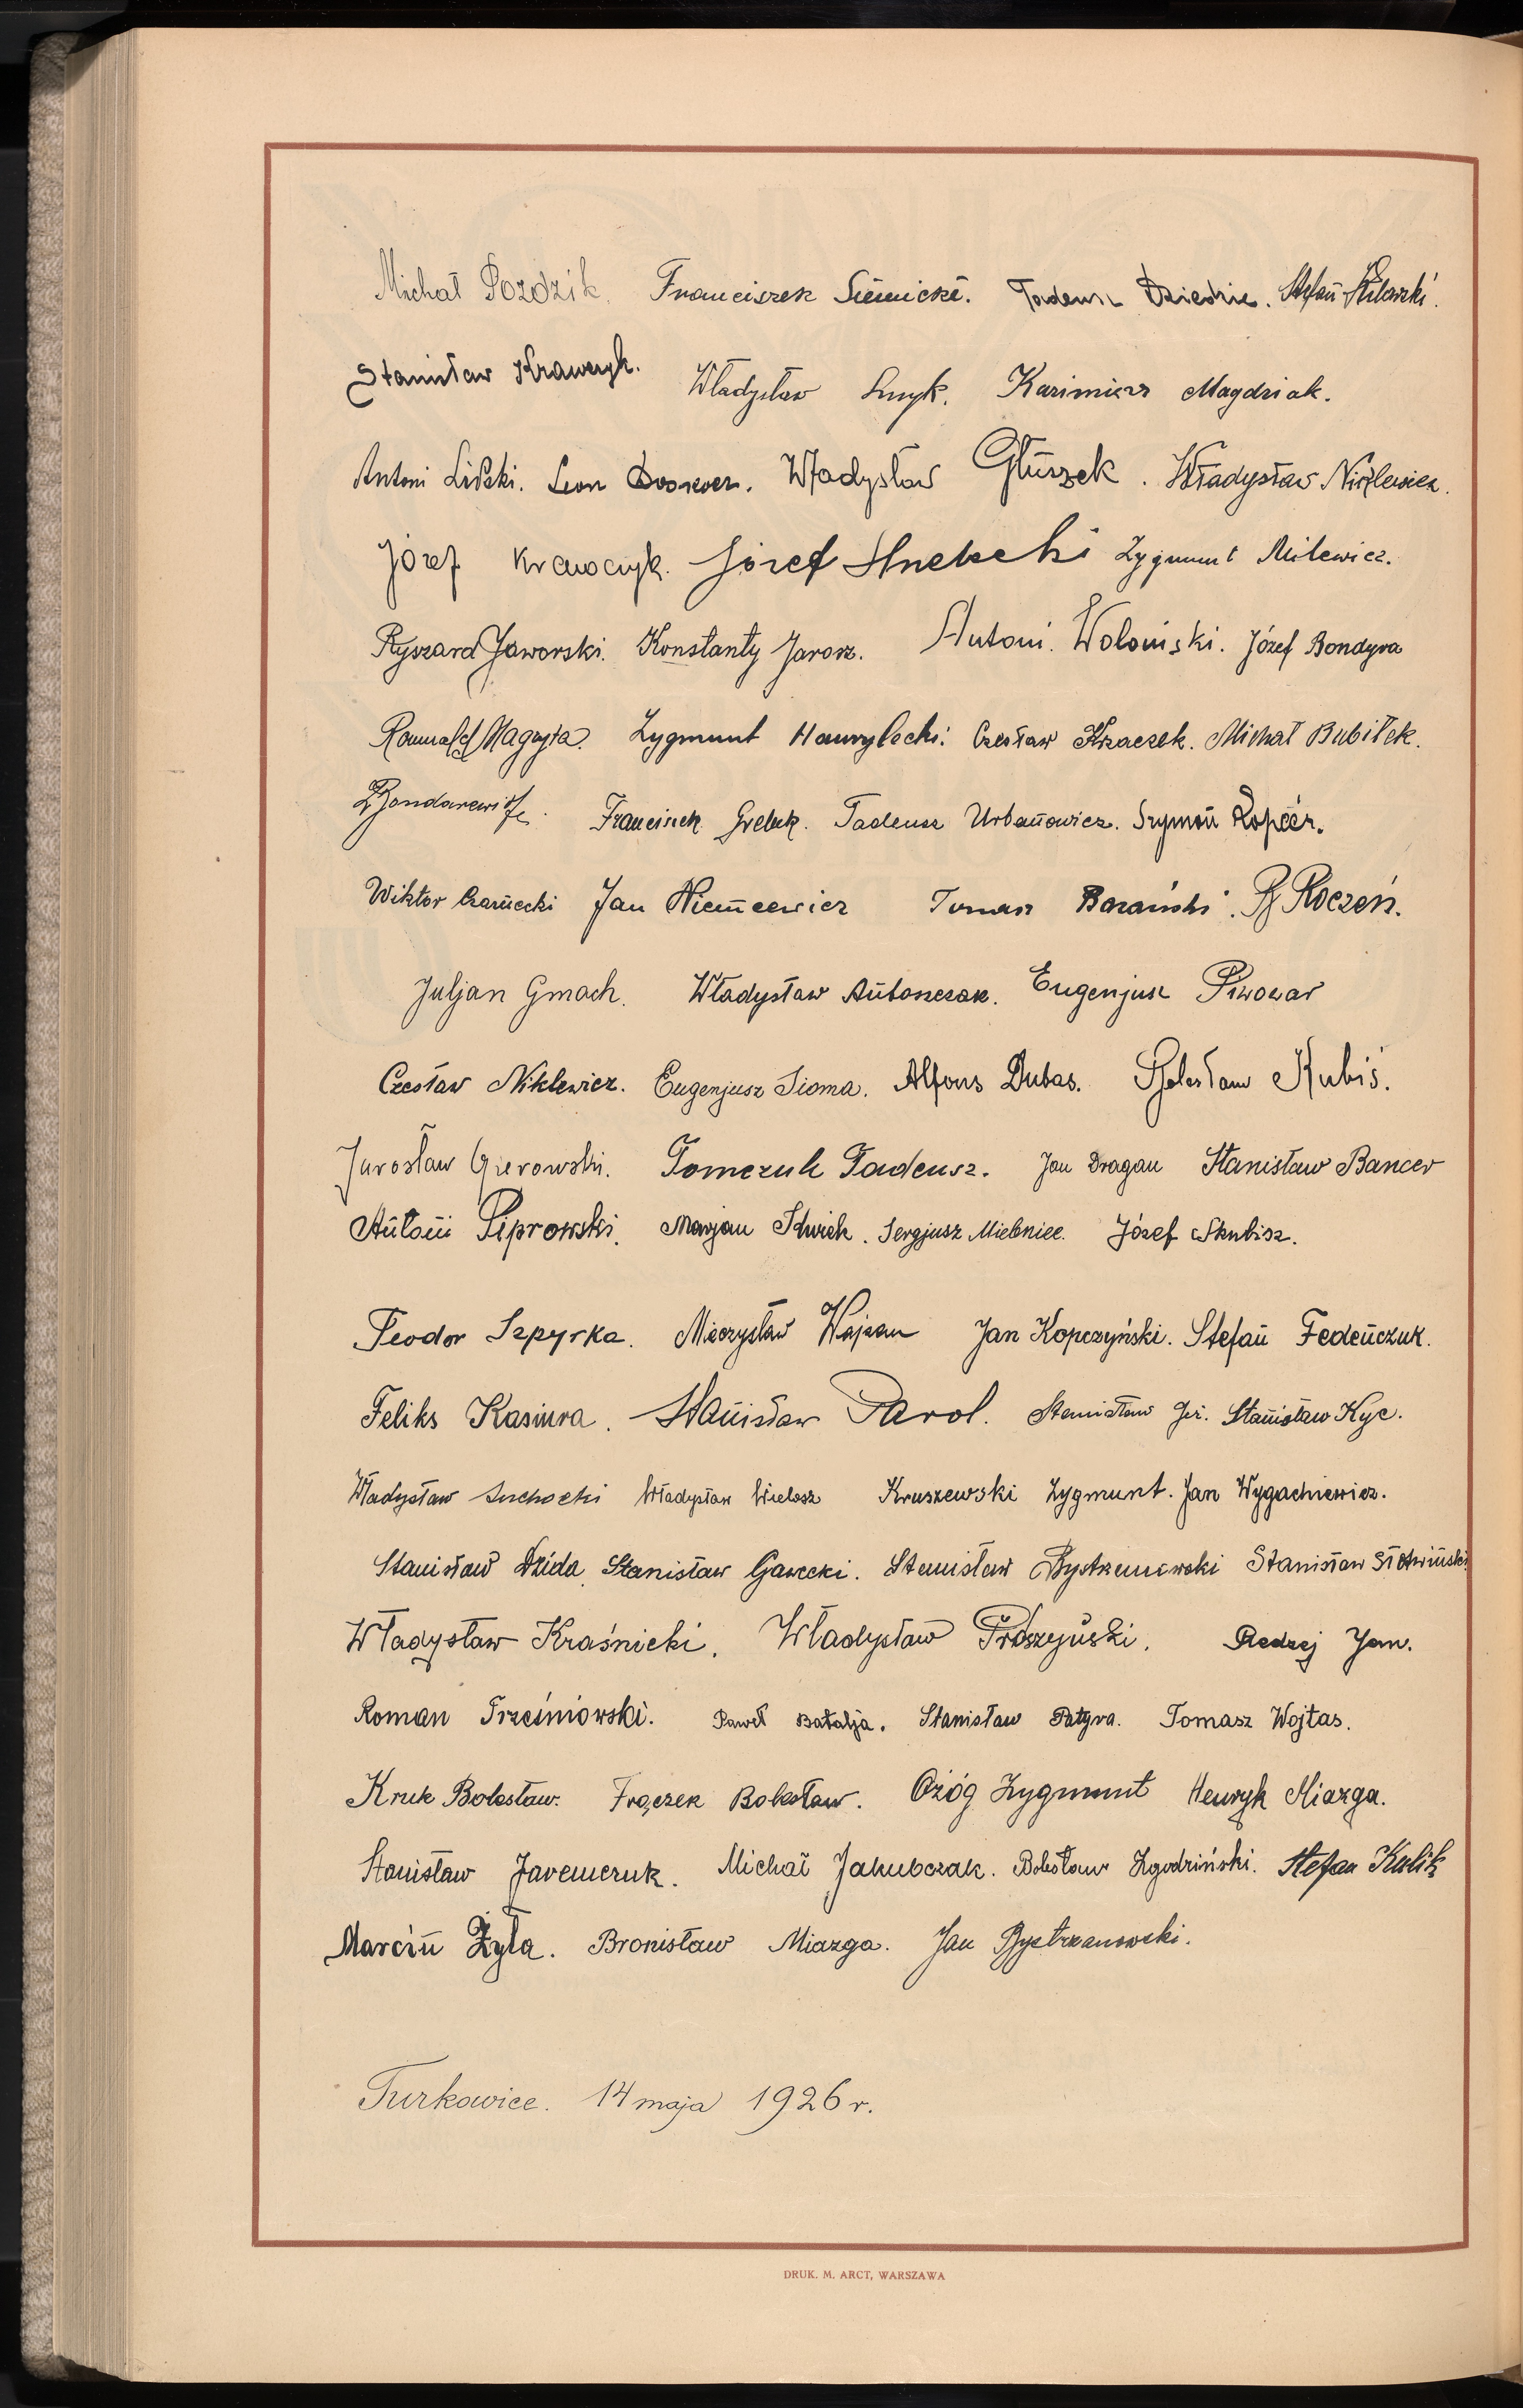 Michał Pozdzik. Franciszek Siemicki. Tadeusz Dziedzic. Stefan
Stanisław Krawczyk. Władysław Smyk. Kazimierz Magdziak.
Antoni Lipski. Leon Władysław Głuszek. Władysław Niklewicz.
Józef Krawczyk. Józef Zygmunt Milewicz.
Ryszard Jaworski. Konstanty Jarosz. Antoni Woloński. Józef Bondyra
Romuald Magryta. Zygmunt Hawrylecki. Czesław Krzaczek. Michał Bubiłek.
Franciszek Greluk. Tadeusz Urbanowicz. Szymon Kopeć.
Wiktor Czarnecki Jan Niemcewicz Tomasz Bazański. Roczeń.
Juljan Gmach. Władysław Antonczak. Eugenjusz Piwowar
Czesław Niklewicz. Eugenjusz Sioma. Alfons Dubas. Bolesław Kubiś.
Jarosław Gierowski. Tomczuk Tadeusz. Jan Dragan Stanisław Bancer
Antoni Piprowski. Marjan Sergjusz Mielniec. Józef Skubisz.
Teodor Szpyrka. Mieczysław Wajzan Jan Kopczyński. Stefan Fedeńczuk.
Feliks Kasiura. Stanisław Parol. Stanisław Stanisław Kyc.
Władysław Suchocki Władysław Wielosz Kruszewski Zygmunt. Jan Wygachiewicz.
Stanisław Dzida. Stanisław Gawecki. Stanisław Bystrzanowski Stanisław Słotwiński
Władysław Kraśnicki. Władysław Prószyński. Redzej Jan.
Roman Trześniowski. Paweł Batalja. Stanisław Patyra. Tomasz Wojtas.
Kruk Bolesław. Frączek Bolesław. Ożóg Zygmunt Henryk Miazga.
Stanisław Jaremczuk. Michał Jakubczak. Bolesław Zgodziński. Stefan Kulik
Marcin Żyła. Bronisław Miazga. Jan Bystrzanowski.
Turkowice. 14 maja 1926 r.
DRUK. M. ARCT, WARSZAWA